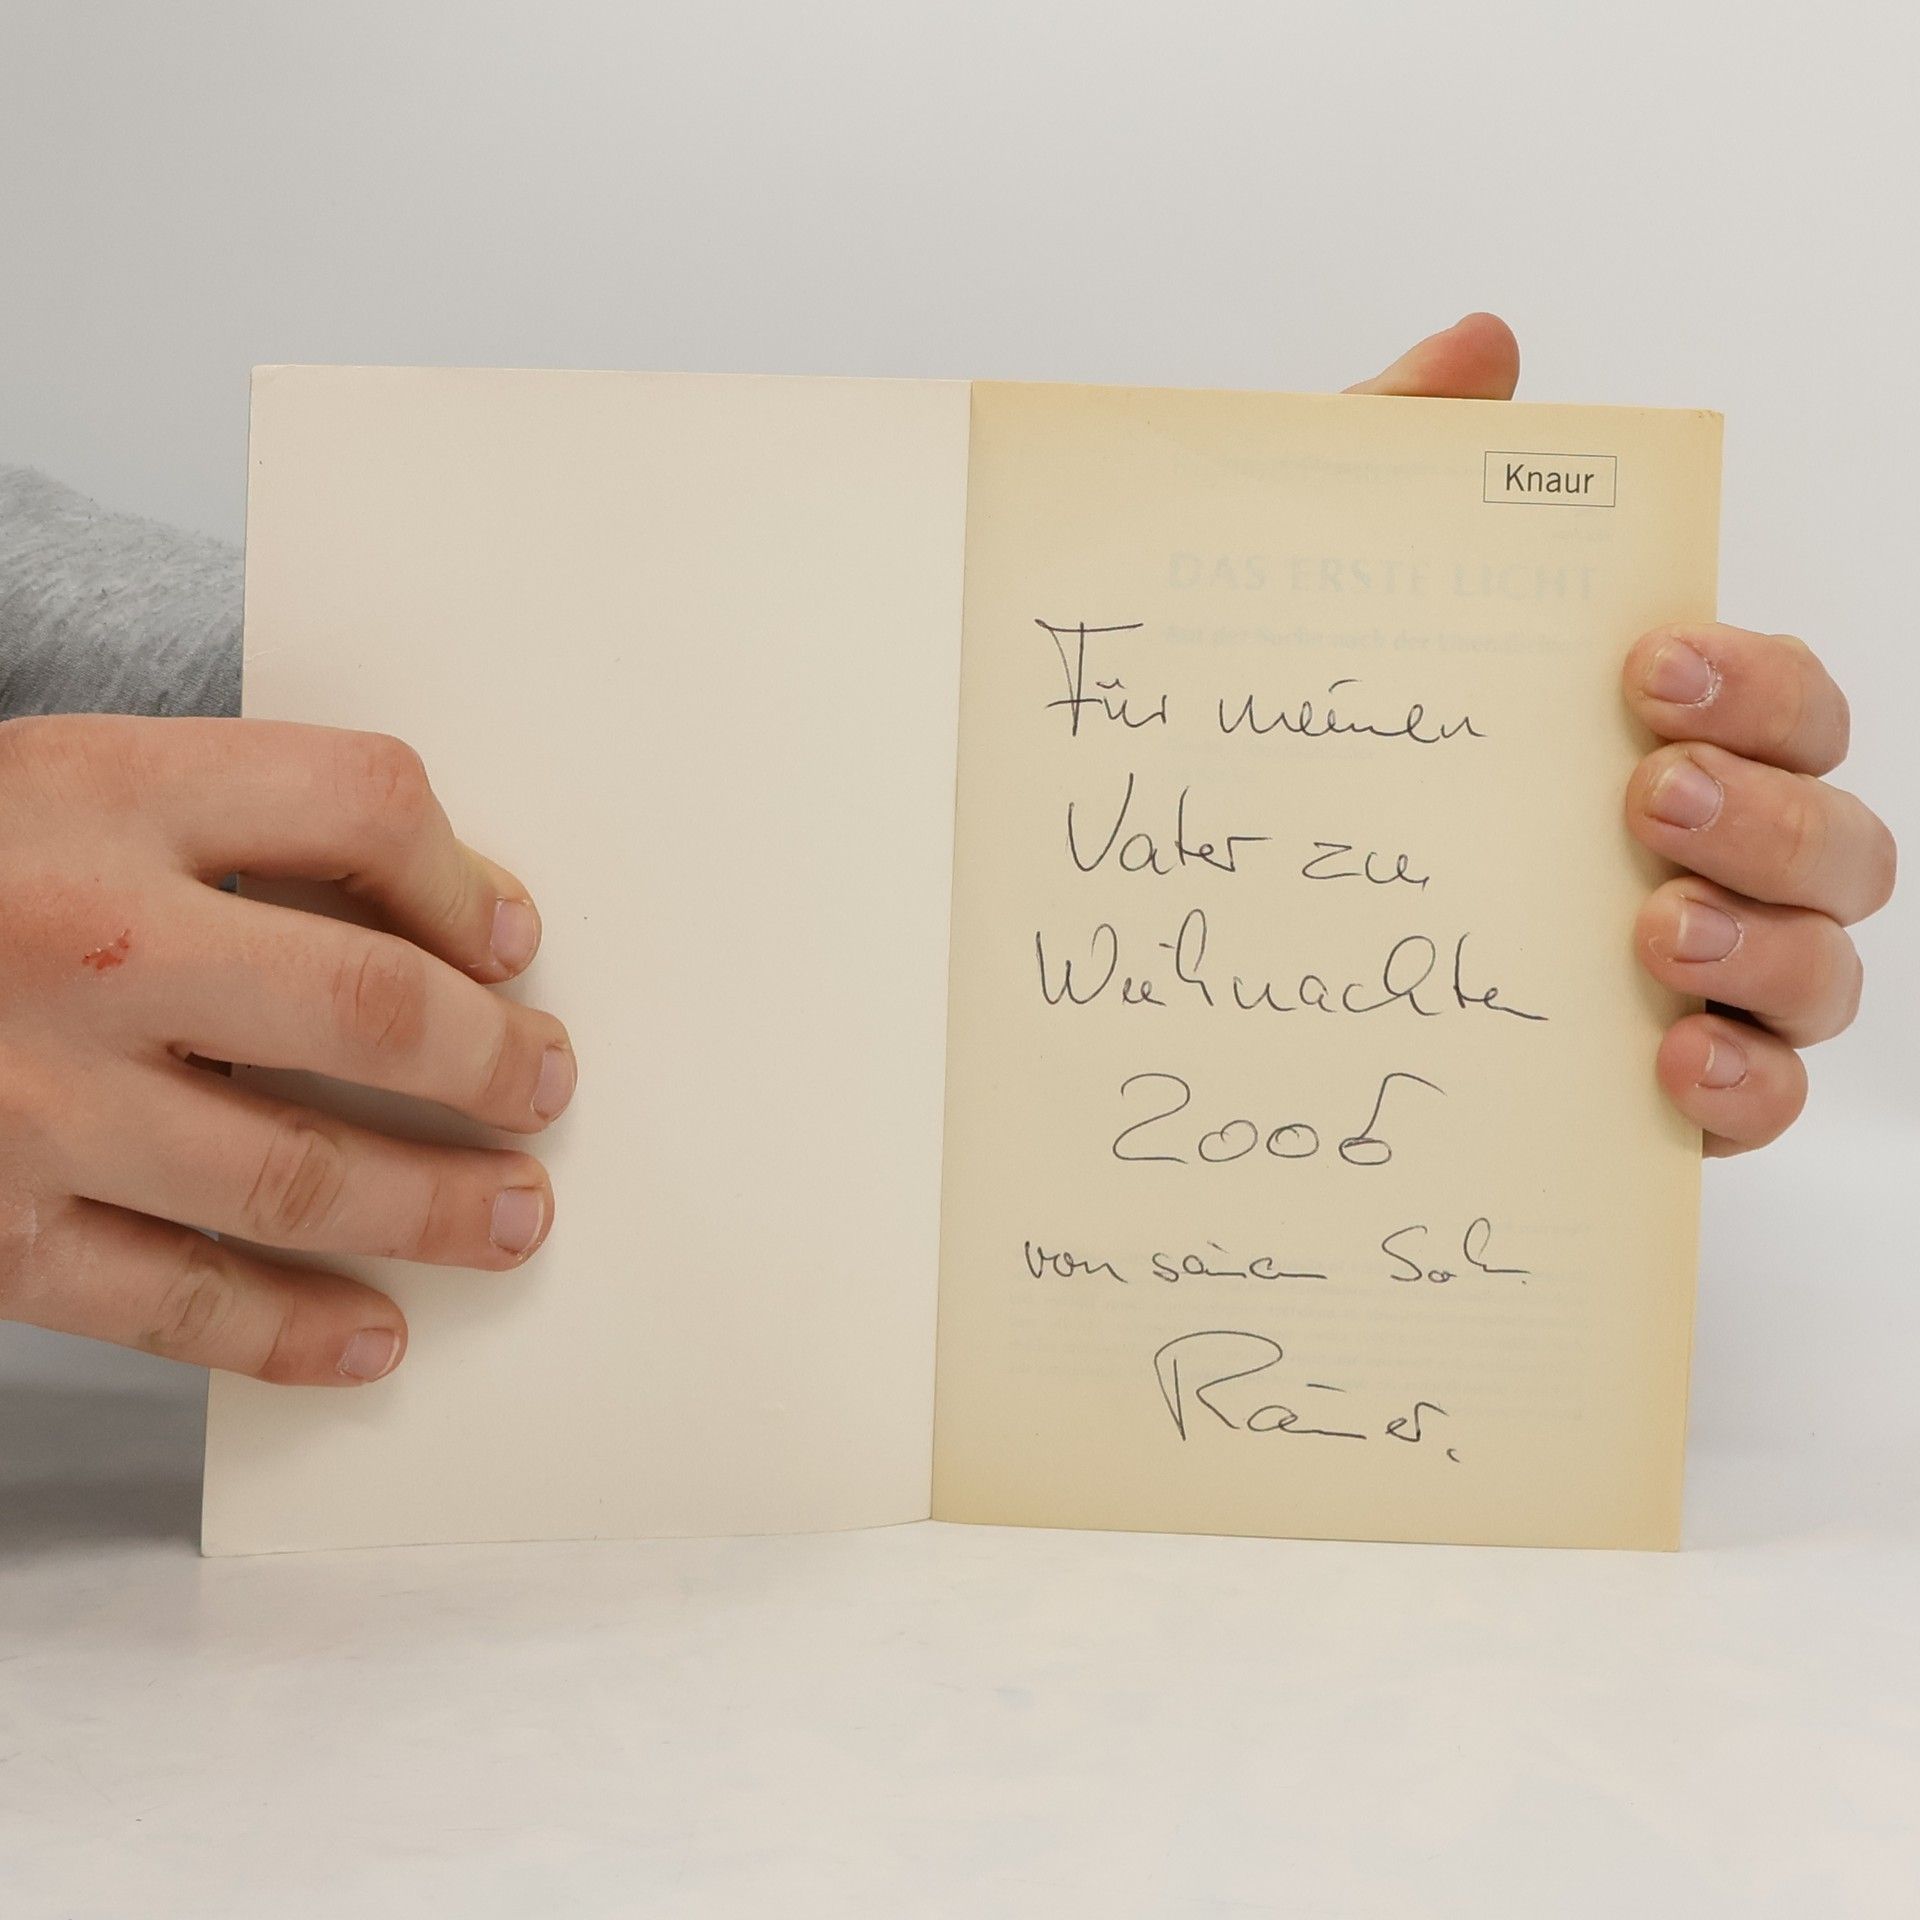 Knaur
DAS ERSTE LICHT
Auf der Suche nach der
Für meinen
Vater zu
Weihnachten
2006
von seinem Sohn
Rainer.